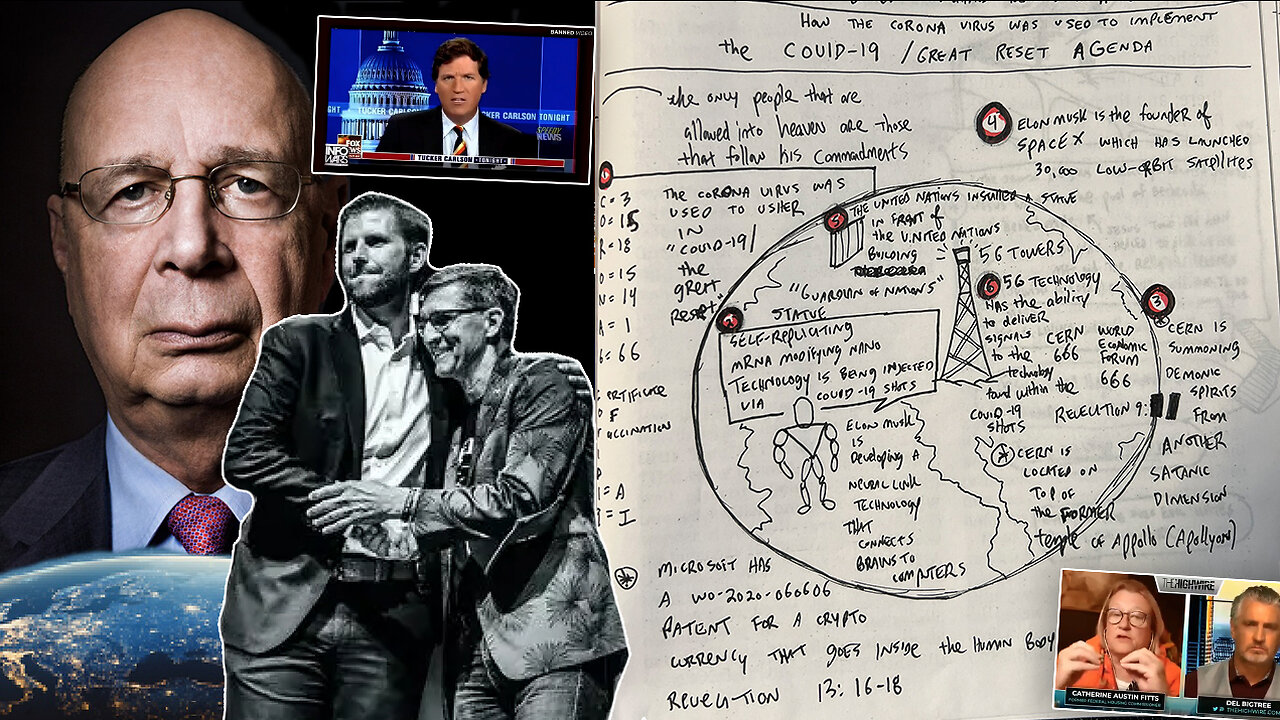 HOW THE CORONA VIRUS WAS USED TO IMPLEMENT
the COVID-19 / GREAT RESET AGENDA
the only people that are
allowed into heaven are those
that follow his Commadments
4
ELON MUSK IS THE FOUNDER OF
SPACE X WHICH HAS LAUNCHED
30,000 LOW-ORBIT SATELLITES
1
C = 3
O = 15
R = 18
O = 15
N = 14
A = 1
= 66
THE CORONA VIRUS WAS
USED TO USHER
IN
"COVID-19/
the
great
Reset"
5
THE UNITED NATIONS INSTALLED A STATUE
IN FRONT OF
the UNITED NATIONS
BUILDING
"GUARDIAN OF NATIONS"
STATUE
5G TOWERS
6
5G TECHNOLOGY
HAS THE ABILITY
to DELIVER
SIGNALS
to the
technology
found within the
COVID-19
SHOTS
CERN
666
WORLD
ECONOMIC
FORUM
666
REVELUTION 9:11
3
CERN IS
SUMMONING
DEMONIC
SPIRITS
FROM
ANOTHER
SATANIC
DIMENSION
CERN IS
LOCATED ON
TOP OF
the FORMER
temple OF APPOLLO (Apollyon)
SELF-REPLICATING
MRNA MODIFYING NANO
TECHNOLOGY IS BEING INJECTED
VIA COVID-19 SHOTS
ELON MUSK
IS
DEVELOPING A
NEURAL LINK
TECHNOLOGY
THAT
CONNECTS
BRAINS TO
COMPUTERS
ERTIFICATE
F
ACCINATION
= A
= I
MICROSOFT HAS
A WO-2020-060606
PATENT FOR A CRYPTO
CURRENCY THAT GOES INSIDE the HUMAN BODY
REVELUTION 13:16-18
BANNED.VIDEO
TUCKER CARLSON TONIGHT
SPEEDY
NEWS
FOX
NEWS
INFO
WARS
TUCKER CARLSON
THEHIGHWIRE
CATHERINE AUSTIN FITTS
FORMER FEDERAL HOUSING COMMISSIONER
DEL BIGTREE
THEHIGHWIRE.COM